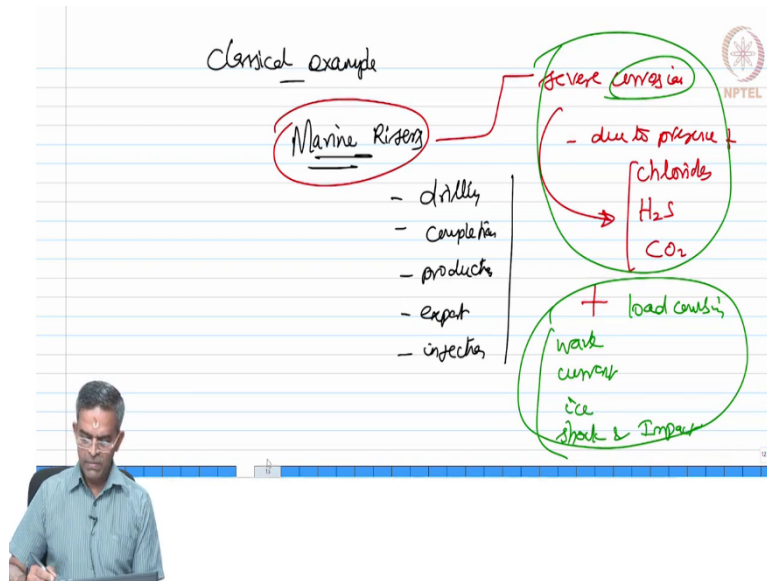 Classical example
Marine Risers
- drilling
- completion
- production
- export
- injection
severe corrosion
- due to presence of
chlorides
H₂S
CO₂
+ load causing
wave
current
ice
shock & Impact
NPTEL
12